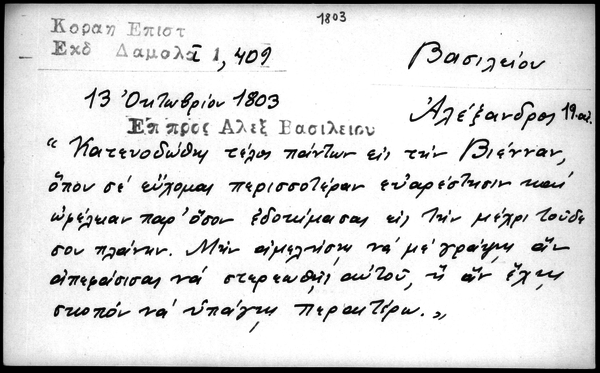 1803
Κοραη Επιστ
Εκδ Δαμαλα Ι 1, 409
Βασιλείου
13 Ὀκτωβρίου 1803
Ἀλέξανδρος 19 αἰ.
Επ προς Αλεξ Βασιλειου
“ Κατευοδώθης τέλος πάντων εἰς τὴν Βιένναν,
ὅπου σέ εὔχομαι περισσοτέραν εὐαρέστησιν καί
ὠφέλειαν παρ' ὅσον ἐδοκίμασας εἰς τὴν μέχρι τοῦδε
σου πλάνην. Μήν ἀμελήσῃς νά μέ γράψῃς ἄν
ἀπεφάσισας νά στερεωθῇς αὐτοῦ, ἤ ἄν ἔχῃς
σκοπόν νά ὑπάγῃς περαιτέρω. „